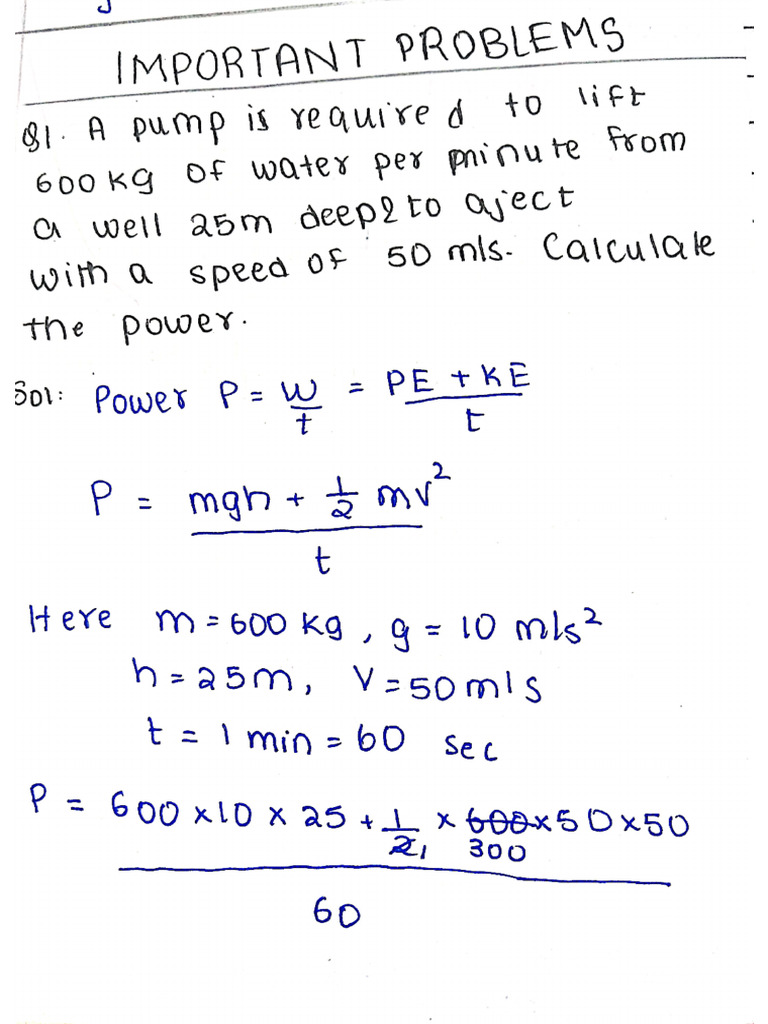 IMPORTANT PROBLEMS
Q1. A pump is required to lift
600kg of water per minute from
a well 25m deep & to aject
with a speed of 50 m/s. Calculate
the power.
Sol: Power P = W/t = PE + KE/t
P = mgh + 1/2 mv²
t
Here m = 600 kg, g = 10 m/s²
h = 25m, V = 50 m/s
t = 1 min = 60 sec
P = 600 × 10 × 25 + 1/2 × 600 × 50 × 50
1 300
60